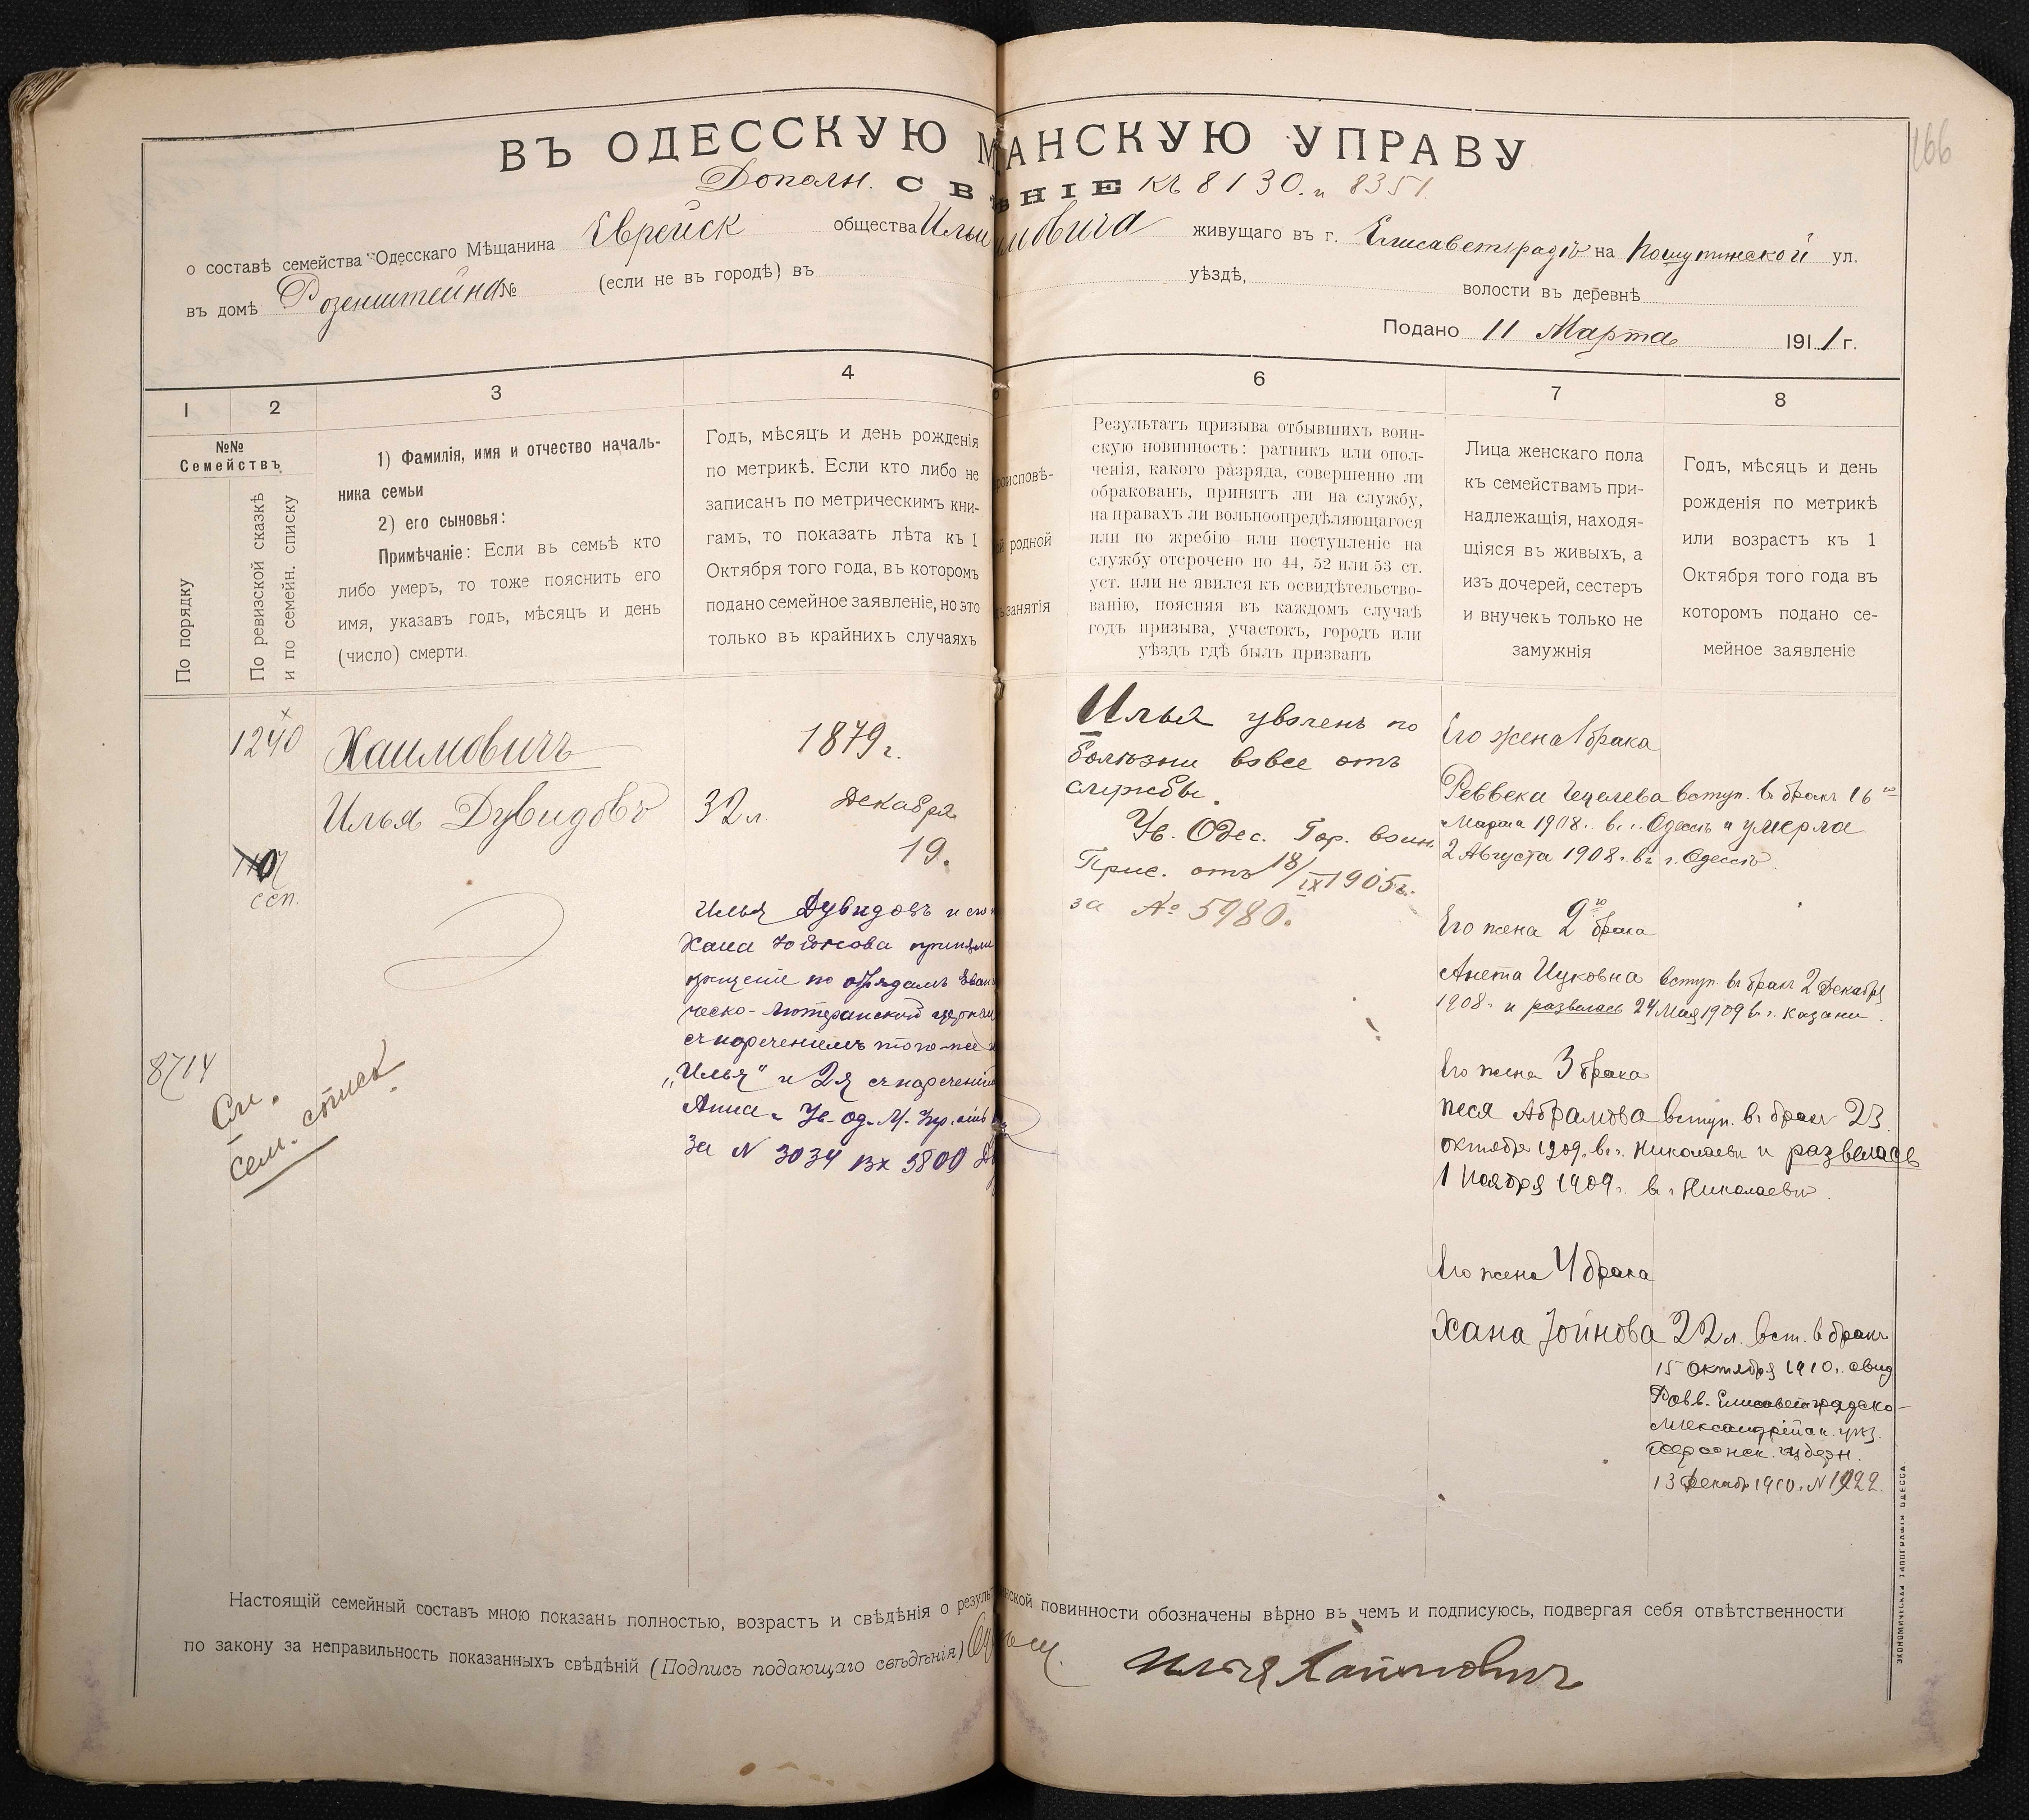 166
ВЪ ОДЕССКУЮ М АНСКУЮ УПРАВУ
Дополн. СВ ѢНІЕ къ 8130. и 8351.
о составѣ семейства Одесскаго Мѣщанина Еврейск общества Ильи имовича живущаго въ г. Елисаветградѣ на ул.
въ домѣ Розенштейна № (если не въ городѣ) въ уѣздѣ, волости въ деревнѣ
Подано 11 Марта 1911 г.
1 2 3 4 6 7 8
№№
Семействъ
По порядку
По ревизской сказкѣ
и по семейн. списку
1) Фамилія, имя и отчество началь-
ника семьи
2) его сыновья:
Примѣчаніе: Если въ семьѣ кто
либо умеръ, то тоже пояснить его
имя, указавъ годъ, мѣсяцъ и день
(число) смерти.
Годъ, мѣсяцъ и день рожденія
по метрикѣ. Если кто либо не
записанъ по метрическимъ кни-
гамъ, то показать лѣта къ 1
Октября того года, въ которомъ
подано семейное заявленіе, но это
только въ крайнихъ случаяхъ
роисповѣ-
ой родной
занятія
Результатъ призыва отбывшихъ воин-
скую повинность: ратникъ или опол-
ченія, какого разряда, совершенно ли
обракованъ, принятъ ли на службу,
на правахъ ли вольноопредѣляющагося
или по жребію или поступленіе на
службу отсрочено по 44, 52 или 53 ст.
уст. или не явился къ освидѣтельство-
ванію, поясняя въ каждомъ случаѣ
годъ призыва, участокъ, городъ или
уѣздъ гдѣ былъ призванъ
Лица женскаго пола
къ семействамъ при-
надлежащія, находя-
щіяся въ живыхъ, а
изъ дочерей, сестеръ
и внучекъ только не
замужнія
Годъ, мѣсяцъ и день
рожденія по метрикѣ
или возрастъ къ 1
Октября того года въ
которомъ подано се-
мейное заявленіе
1240
сеп.
8714
См.
сем. списк
Хаимовичъ
Илья Дувидовъ
1879 г.
32 л. Декабря
19.
Илья Дувидовъ и его
Хана Юйнова приняли
крещеніе по обрядамъ Еван
ческо-лютеранской церкви
съ нареченіемъ того-же
„Илья" и 2я съ нареченіемъ
Анна. Ув. Од. М. Упр.
за N 3034 вх 5800
Илья уволенъ по
болѣзни вовсе отъ
службы.
Ув. Одес. Гор. воин.
Прис. отъ 18/IX 1905 г.
за № 5980.
Его жена 1 брака
Реввека вступ. въ бракъ 16го
Марта 1908 г. въ г. Одессѣ и умерла
2 Августа 1908 г. въ г. Одессѣ
Его жена 2го брака
Анета Ицковна вступ. въ бракъ 2 Декабря
1908 г. и развелась 24 Мая 1909 в г. Казани.
Его жена 3 брака
Песя Абрамова вступ. въ бракъ 23
октября 1909. въ г. Николаевѣ и развелась
1 Ноября 1909 г. въ г Николаевѣ.
Его жена 4 брака
Хана Іойнова 22 л. вст. в бракъ
15 октября 1910 г. свид
Равв. Елисаветградско-
Александрійск. уѣз.
Херсонск. губерн.
13 Декабр 1910 г. N 1222.
Настоящій семейный составъ мною показанъ полностью, возрастъ и свѣдѣнія о резуль инской повинности обозначены вѣрно въ чемъ и подписуюсь, подвергая себя отвѣтственности
по закону за неправильность показанныхъ свѣдѣній (Подпись подающаго свѣдѣнія)
Илья Хаймовичъ
ЭКОНОМИЧЕСКАЯ ТИПОГРАФІЯ ОДЕССА.